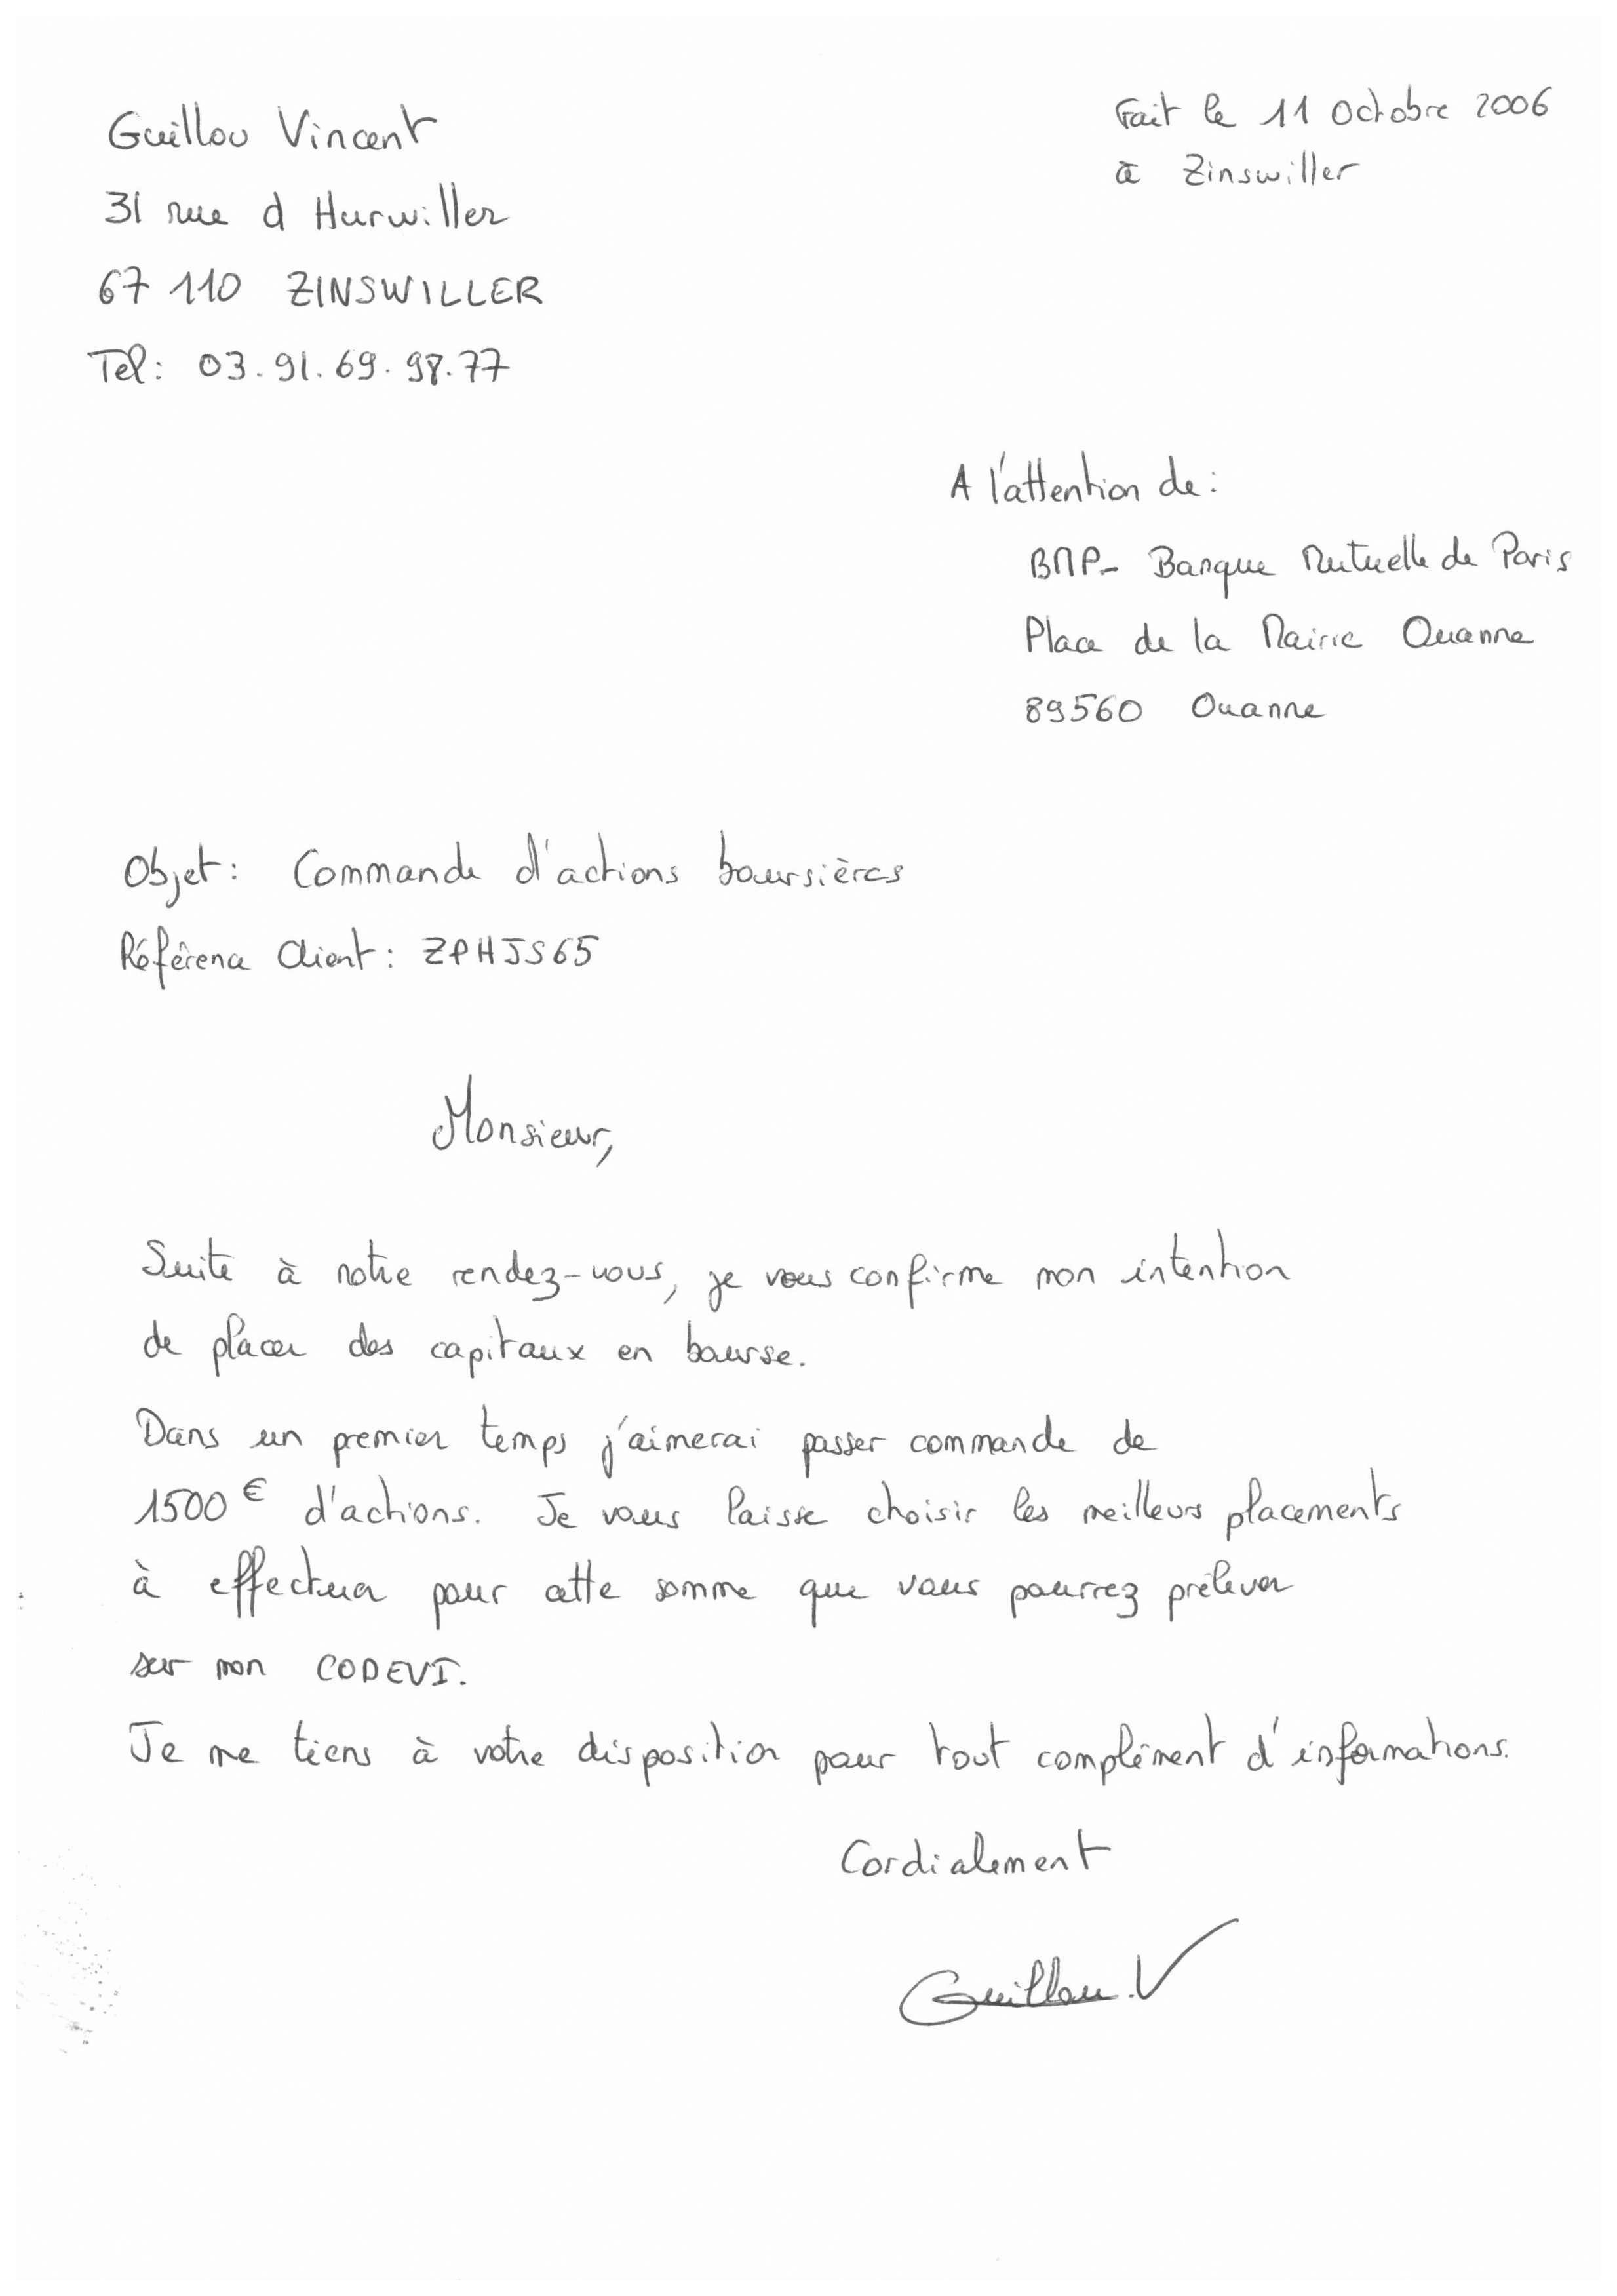 Guillou Vincent
31 rue d Hurwiller
67 110 ZINSWILLER
Tel: 03.91.69.98.77
Fait le 11 Octobre 2006
à Zinswiller
A l'attention de:
BMP- Banque Mutuelle de Paris
Place de la Mairie Ouanne
89560 Ouanne
Objet: Commande d'actions boursières
Référence Client: ZPHJS65
Monsieur,
Suite à notre rendez-vous, je vous confirme mon intention
de placer des capitaux en bourse.
Dans un premier temps j'aimerai passer commande de
1500 € d'actions. Je vous laisse choisir les meilleurs placements
à effectuer pour cette somme que vous pourrez prélever
sur mon CODEVI.
Je me tiens à votre disposition pour tout complément d'informations.
Cordialement
Guillou.V